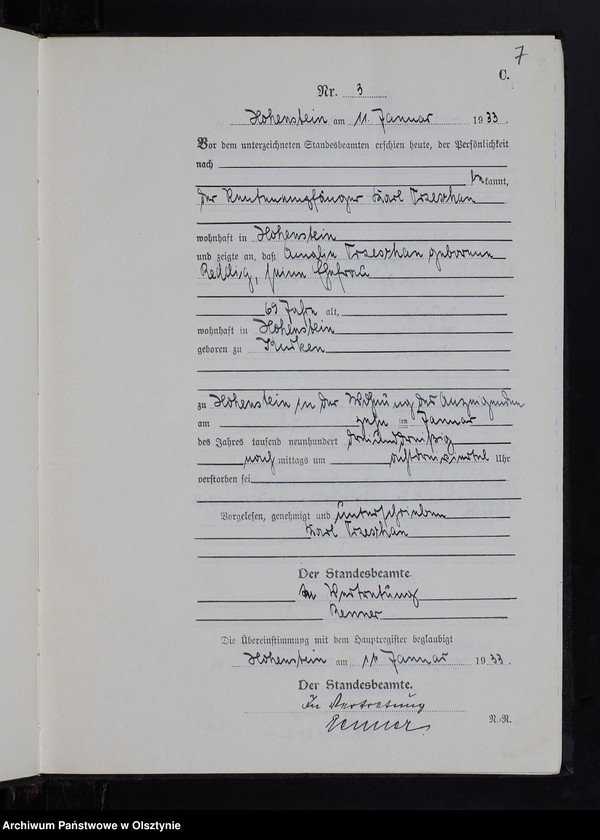 7
C.
Nr. 3
Hohenstein am 11. Januar 1933.
Vor dem unterzeichneten Standesbeamten erschien heute, der Persönlichkeit
nach
bekannt,
der Rentenempfänger Karl Trzeschan
wohnhaft in Hohenstein
und zeigte an, daß Amalie Trzeschan geborene
Reddig, seine Ehefrau
69 Jahre alt,
wohnhaft in Hohenstein
geboren zu Kuiken
zu Hohenstein in der Wohnung des Anzeigenden
am zehn ten Januar
des Jahres tausend neunhundert dreiunddreißig
nach mittags um Uhr
verstorben sei
Vorgelesen, genehmigt und unterschrieben
Karl Trzeschan
Der Standesbeamte
In Vertretung
Renner
Die Übereinstimmung mit dem Hauptregister beglaubigt
Hohenstein am 11. Januar 1933.
Der Standesbeamte.
In Vertretung
Renner
N.-R.
Archiwum Państwowe w Olsztynie